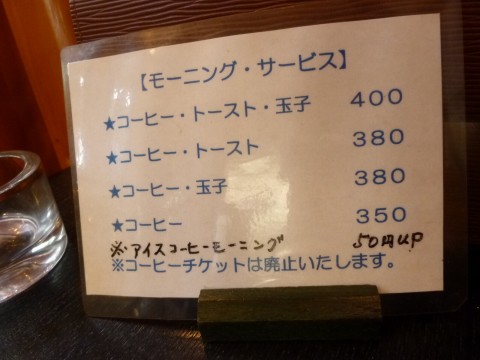 【モーニング・サービス】
★コーヒー・トースト・玉子 400
★コーヒー・トースト 380
★コーヒー・玉子 380
★コーヒー 350
※アイスコーヒーモーニング 50円up
※コーヒーチケットは廃止いたします。